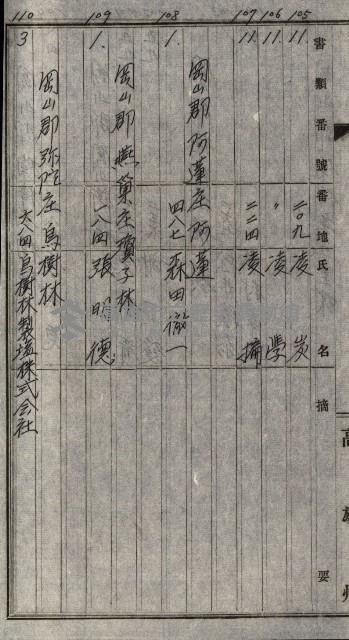 書類番號 番地 氏名 摘要
高雄州
105 11. 二〇九 凌炭
106 11. 〃 凌學
107 11. 二二四 凌
岡山郡阿蓮庄阿蓮
108 1. 四七 森田徹一
岡山郡燕巢庄瓊子林
109 1. 一八四 張明德
岡山郡弥陀庄烏樹林
110 3 六八四 烏樹林製塩株式会社